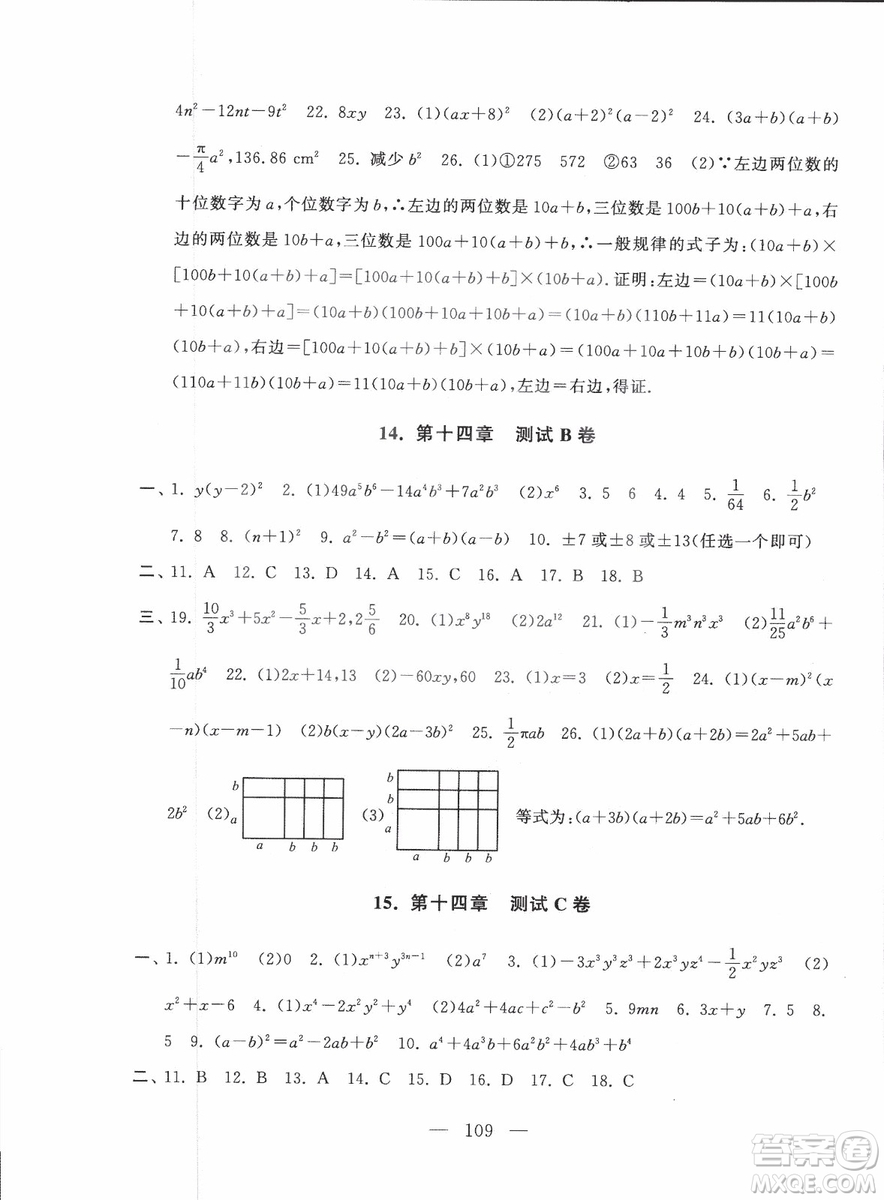 4n²−12nt−9t² 22. 8xy 23. (1)(ax+8)² (2)(a+2)²(a−2)² 24. (3a+b)(a+b)
−π/4 a²,136.86 cm² 25. 减少 b² 26. (1)①275 572 ②63 36 (2)∵左边两位数的
十位数字为 a,个位数字为 b,∴左边的两位数是 10a+b,三位数是 100b+10(a+b)+a,右
边的两位数是 10b+a,三位数是 100a+10(a+b)+b,∴一般规律的式子为:(10a+b)×
[100b+10(a+b)+a]=[100a+10(a+b)+b]×(10b+a).证明:左边=(10a+b)×[100b
+10(a+b)+a]=(10a+b)(100b+10a+10b+a)=(10a+b)(110b+11a)=11(10a+b)
(10b+a),右边=[100a+10(a+b)+b]×(10b+a)=(100a+10a+10b+b)(10b+a)=
(110a+11b)(10b+a)=11(10a+b)(10b+a),左边=右边,得证.
14. 第十四章 测试 B 卷
一、1. y(y−2)² 2. (1)49a⁵b⁶−14a⁴b³+7a²b³ (2)x⁶ 3. 5 6 4. 4 5. 1/64 6. 1/2 b²
7. 8 8. (n+1)² 9. a²−b²=(a+b)(a−b) 10. ±7 或±8 或±13(任选一个即可)
二、11. A 12. C 13. D 14. A 15. C 16. A 17. B 18. B
三、19. 10/3 x³+5x²−5/3 x+2,2 5/6 20. (1)x⁸y¹⁸ (2)2a¹² 21. (1)−1/3 m³n³x³ (2)11/25 a²b⁶+
1/10 ab⁴ 22. (1)2x+14,13 (2)−60xy,60 23. (1)x=3 (2)x=1/2 24. (1)(x−m)²(x
−n)(x−m−1) (2)b(x−y)(2a−3b)² 25. 1/2 πab 26. (1)(2a+b)(a+2b)=2a²+5ab+
2b² (2) b a a b b b (3) b b a a b b b 等式为:(a+3b)(a+2b)=a²+5ab+6b².
15. 第十四章 测试 C 卷
一、1. (1)m¹⁰ (2)0 2. (1)xⁿ⁺³y³ⁿ⁻¹ (2)a⁷ 3. (1)−3x³y³z³+2x³yz⁴−1/2 x²yz (2)
x²+x−6 4. (1)x⁴−2x²y²+y⁴ (2)4a²+4ac+c²−b² 5. 9mn 6. 3x+y 7. 5 8.
5 9. (a−b)²=a²−2ab+b² 10. a⁴+4a³b+6a²b²+4ab³+b⁴
二、11. B 12. B 13. A 14. C 15. D 16. D 17. C 18. C
— 109 —
答案圈
MXQE.COM